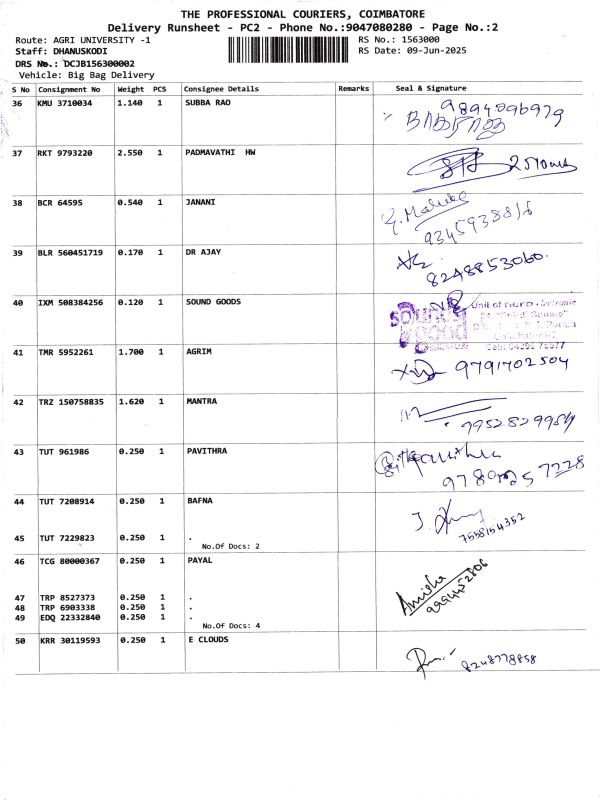 THE PROFESSIONAL COURIERS, COIMBATORE
Delivery Runsheet - PC2 - Phone No.:9047080280 - Page No.:2
Route: AGRI UNIVERSITY -1 RS No.: 1563000
Staff: DHANUSKODI RS Date: 09-Jun-2025
DRS No.: DCJB156300002
Vehicle: Big Bag Delivery
S No Consignment No Weight PCS Consignee Details Remarks Seal & Signature
36 KMU 3710034 1.140 1 SUBBA RAO
37 RKT 9793220 2.550 1 PADMAVATHI HW
38 BCR 64595 0.540 1 JANANI
39 BLR 560451719 0.170 1 DR AJAY 8248853060.
40 IXM 508384256 0.120 1 SOUND GOODS
41 TMR 5952261 1.700 1 AGRIM 9791702504
42 TRZ 150758835 1.620 1 MANTRA
43 TUT 961986 0.250 1 PAVITHRA
44 TUT 7208914 0.250 1 BAFNA
7558154352
45 TUT 7229823 0.250 1 .
No.Of Docs: 2
46 TCG 80000367 0.250 1 PAYAL
Amisha
9994452806
47 TRP 8527373 0.250 1 .
48 TRP 6903338 0.250 1 .
49 EDQ 22332840 0.250 1 .
No.Of Docs: 4
50 KRR 30119593 0.250 1 E CLOUDS
8248778858